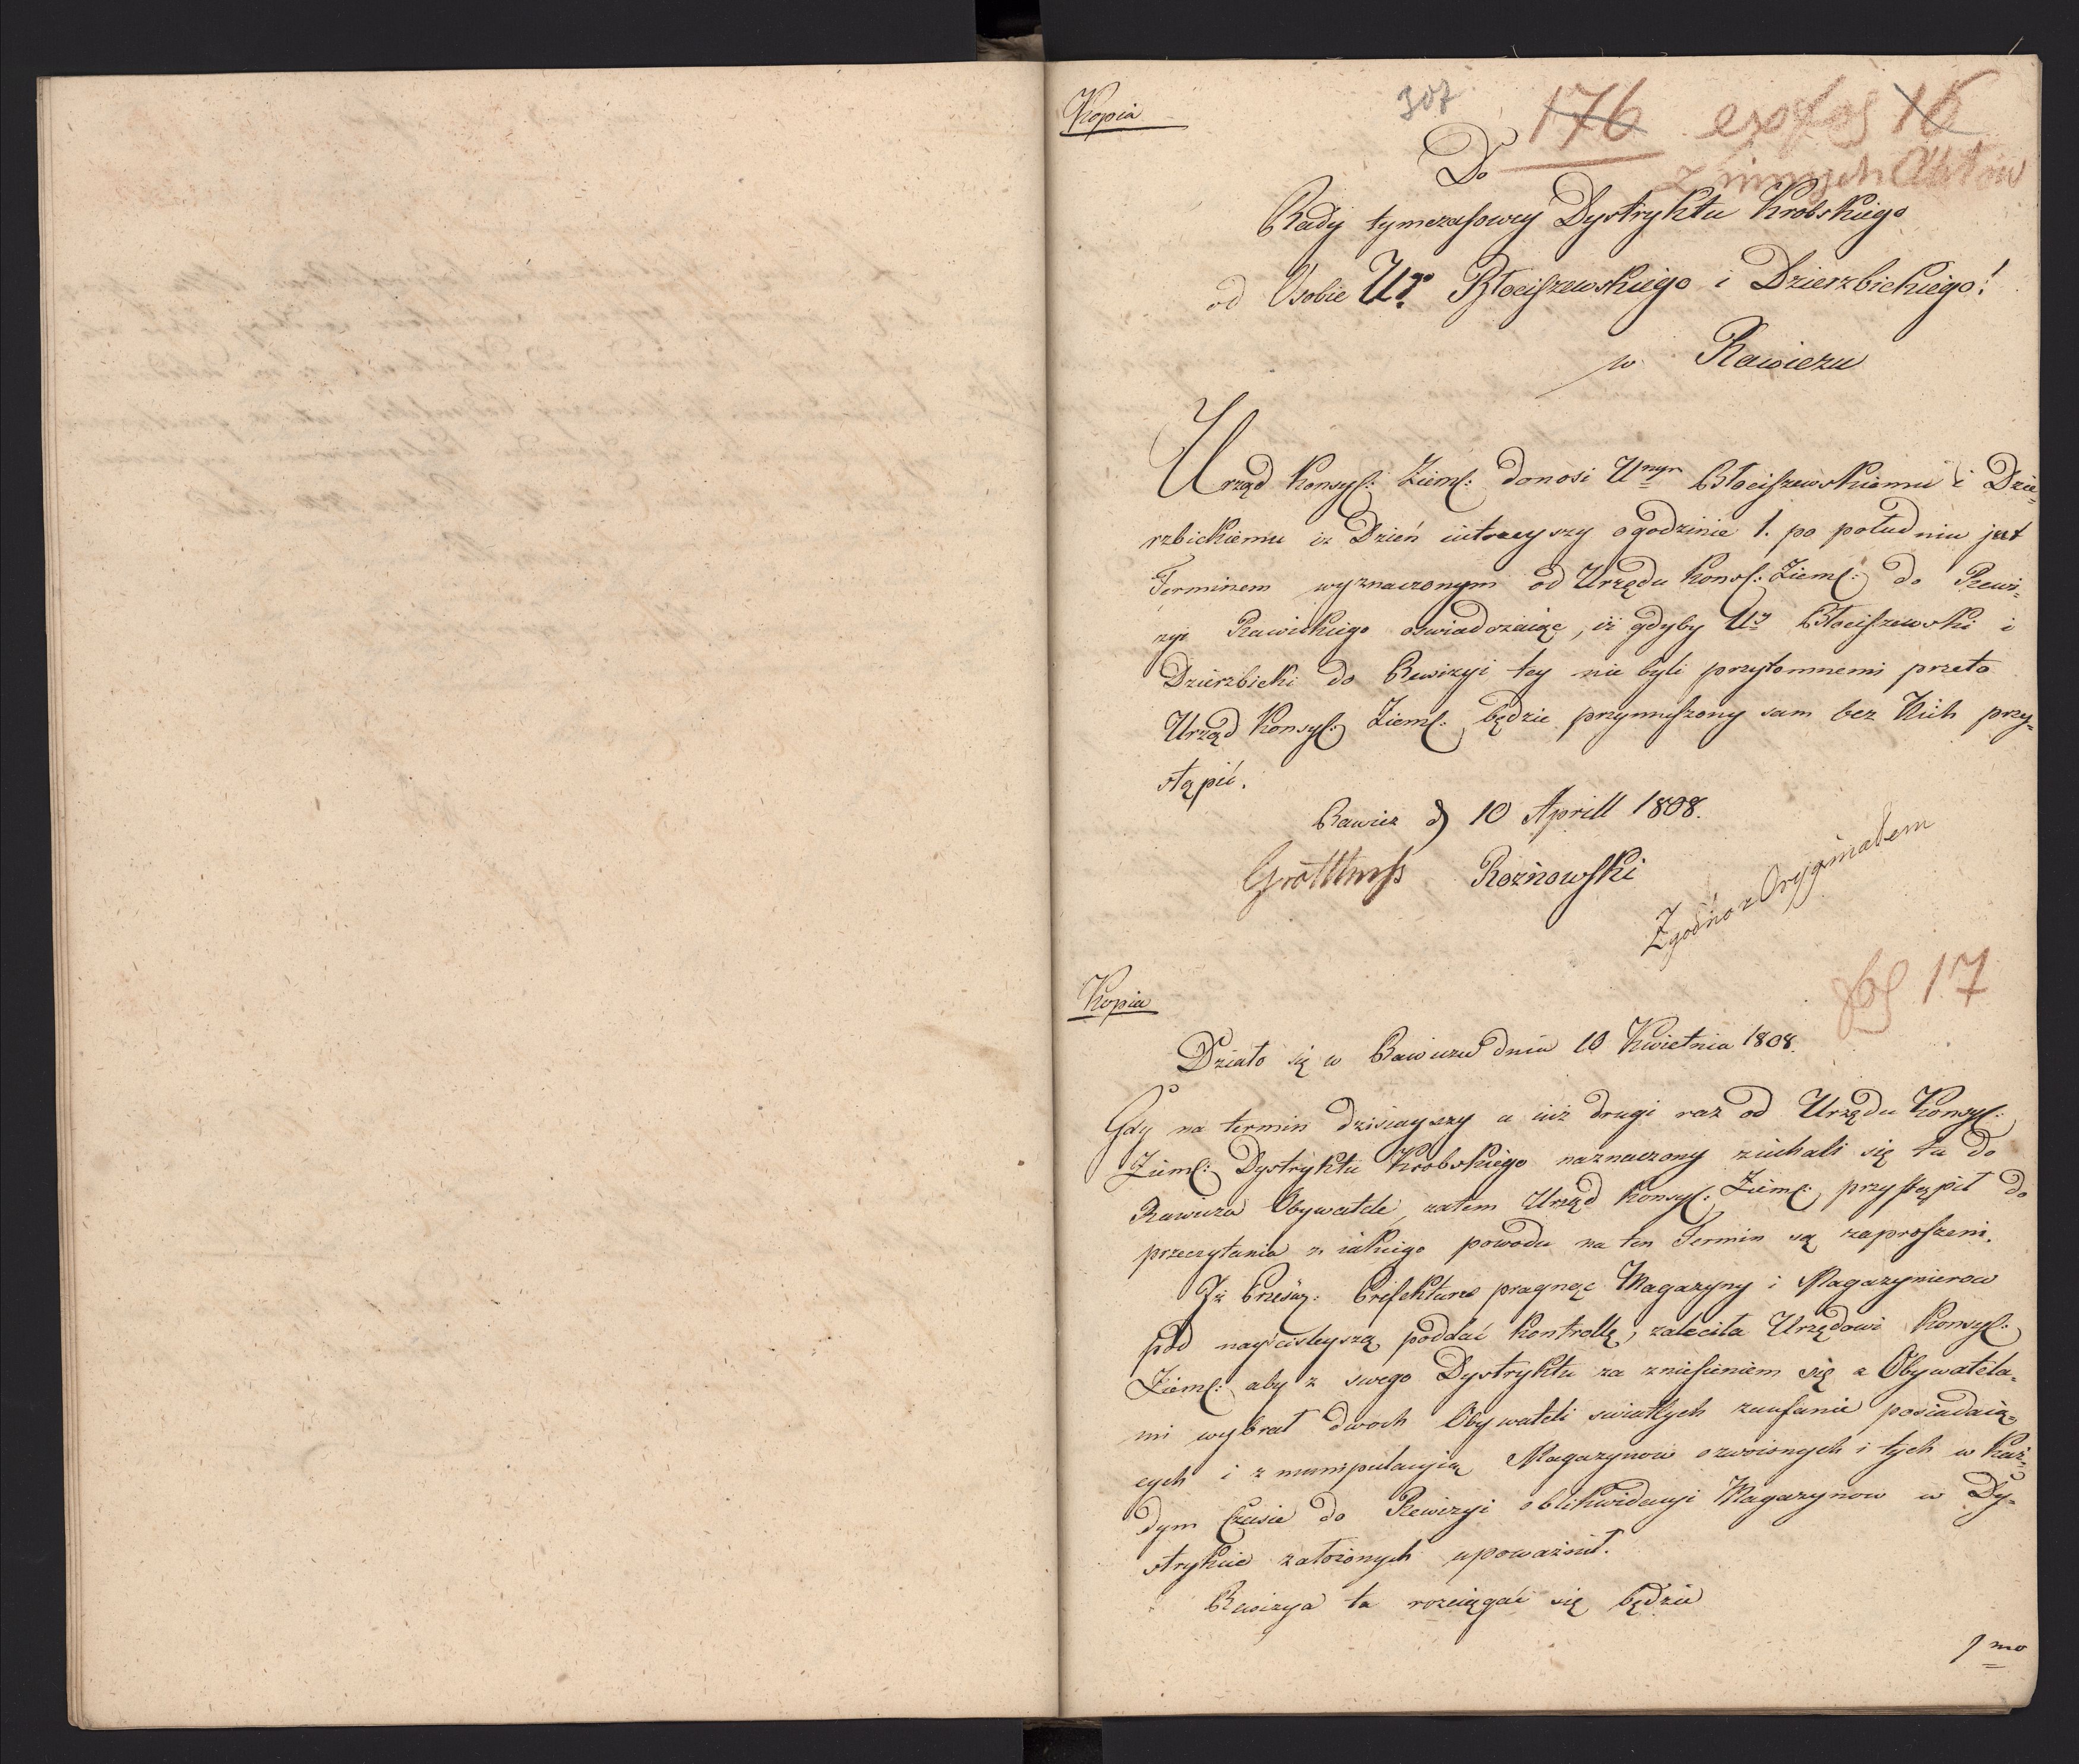 Kopia
307
176 ex fol 16
z innych Aktow
Do
Rady tymczasowey Dystryktu Krobskiego
od Osobie Ur. Błociszewskiego i Dzierzbickiego!
w Rawiczu
Urząd Konsyl: Ziemſ: donosi Unym Błociszewskiemu i Dzie=
rzbickiemu iz Dzień iutrzeyszy o godzinie 1. po południu jest
Terminem wyznaczonym od Urzędu Konsſ: Ziemſ: do Rewi=
zyi Rawickiego oswiadczaiąc, iż gdyby Ur Błociszewski i
Dzierzbicki do Rewizyi tey nie byli przytomnemi przeto
Urząd Konsyl: Ziemſ: będzie przymuszony sam bez Nich przy=
stąpić.
Rawicz d 10 Aprill 1808.
Rożnowſki
Zgodno z Oryginałem
fol 17
Kopia
Działo się w Rawiczu dnia 10 Kwietnia 1808.
Gdy na termin dzisiayszy a iuż drugi raz od Urzędu Konsyl:
Ziemſ: Dystryktu Krobskiego naznaczony ziechali się tu do
Rawicza Obywatele, zatem Urząd Konsyl: Ziemſ: przystąpił do
przeczytania z iakiego powodu na ten Termin są zaproszeni.
Iż Prześwi: Prefektura pragnąc Magazyny i Magazynierow
pod nayscisleyszą poddać Kontrollę, zaleciła Urzędowi Konsyl:
Ziemſ: aby z swego Dystryktu za zniesieniem się z Obywatela=
mi wybrał dwoch Obywateli swiatłych zaufanie posiadaią=
cych i z manipulacyią Magazynow ozwoionych i tych w Każ=
dym Czasie do Rewizyi oblikwidacyi Magazynow w Dy=
strykcie założonych upoważnił.
Rewizya ta rozciągać się będzie
1mo